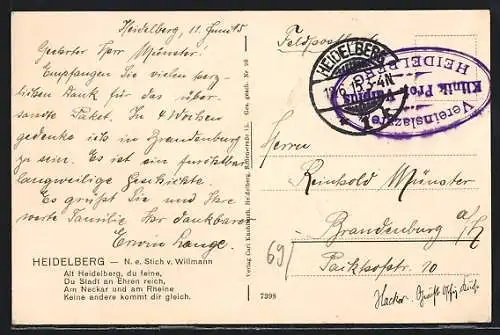 Heidelberg, 11. Juni 15
Geehrter Herr Münster.
Empfangen Sie vielen herz-
lichen Dank für das über-
sandte Paket. In 4 Wochen
gedenke ich in Brandenburg
zu sein. Es ist eine furchtbar
langweilige Geschichte.
Es grüßt Sie und Ihre
werte Familie Ihr dankbarer
Erwin Lange.
HEIDELBERG — N. e. Stich v. Willmann
Alt Heidelberg, du feine,
Du Stadt an Ehren reich,
Am Neckar und am Rheine
Keine andere kommt dir gleich.
Ges. gesch. Nr. 20
Verlag Carl Heidelberg,
7398
Feldpostkarte
HEIDELBERG
12.6.15. 3-4N
Vereinslazarett
Klinik Prof.
HEIDELB
Herrn
Reinhold Münster
Brandenburg a/H
Parkhofstr. 10
69/